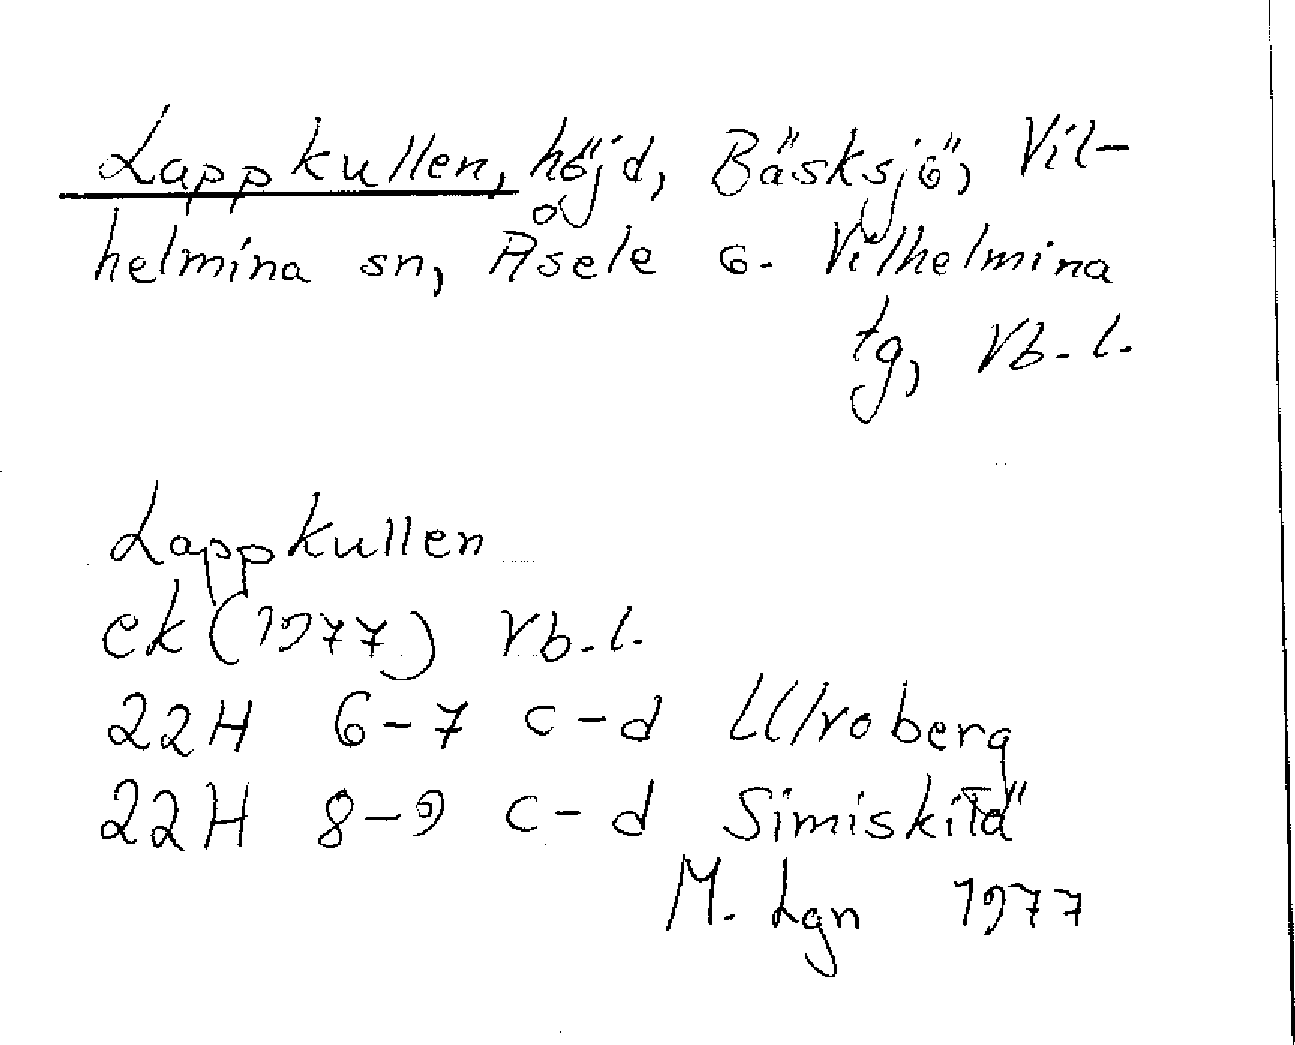 Lappkullen, höjd, Bäsksjö, Vil-
helmina sn, Åsele o. Vilhelmina
tg, Vb. l.
Lappkullen
ek (1977) Vb. l.
22H 6-7 c-d Ullroberg
22H 8-9 c-d Simiskilä
M. Lgn 1977